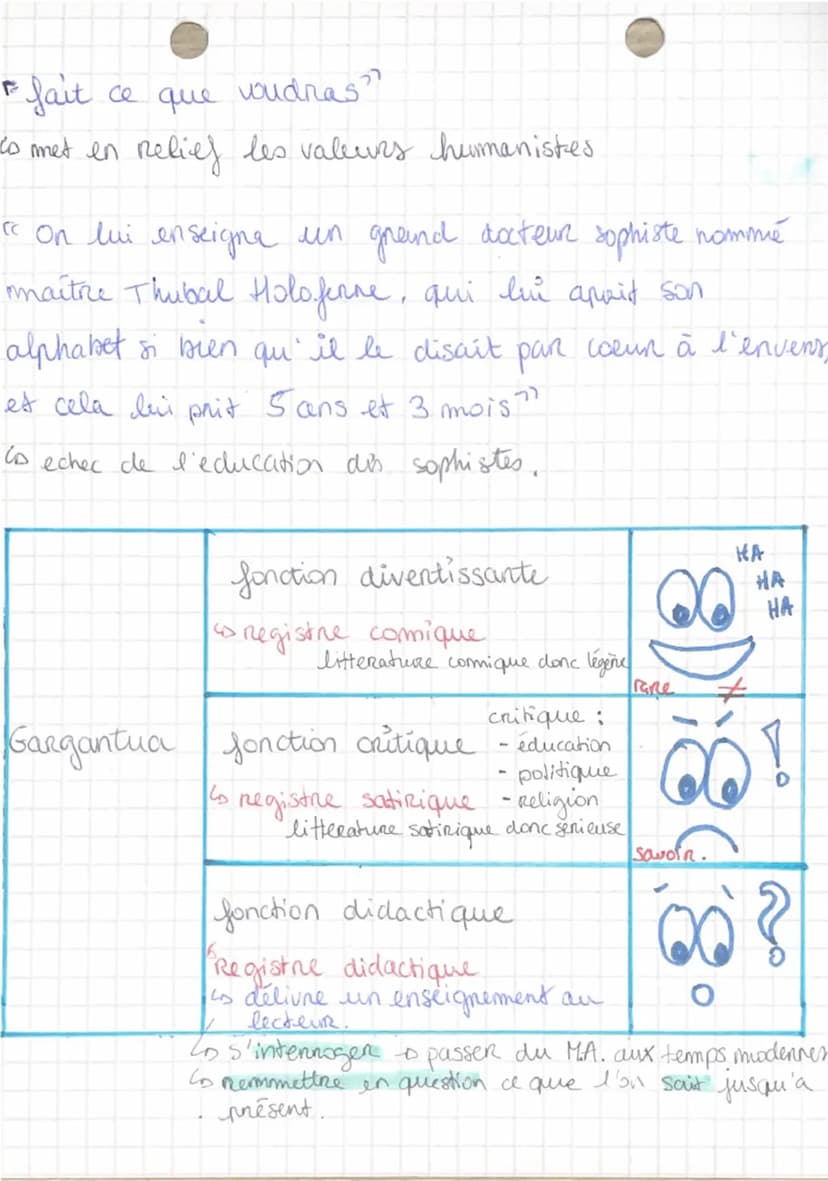 " fait ce que voudras"
↳ met en relief les valeurs humanistes
" On lui enseigna un grand docteur sophiste nommé
maître Thubal Holoferne, qui lui aprit son
alphabet si bien qu'il le disait par coeur à l'envers,
et cela lui prit 5 ans et 3 mois"
↳ echec de l'education des sophistes.
Gargantua
fonction divertissante
↳ registre comique
litterature comique donc légère
HA
HA
HA
rire ≠
fonction critique
critique :
- éducation
- politique
- religion
↳ registre satirique
litterature satirique donc serieuse
!
savoir.
fonction didactique
↳ Registre didactique
↳ délivre un enseignement au
lecteur.
?
↳ s'interroger → passer du M.A. aux temps modernes
↳ remmettre en question ce que l'on sait jusqu'a
présent.